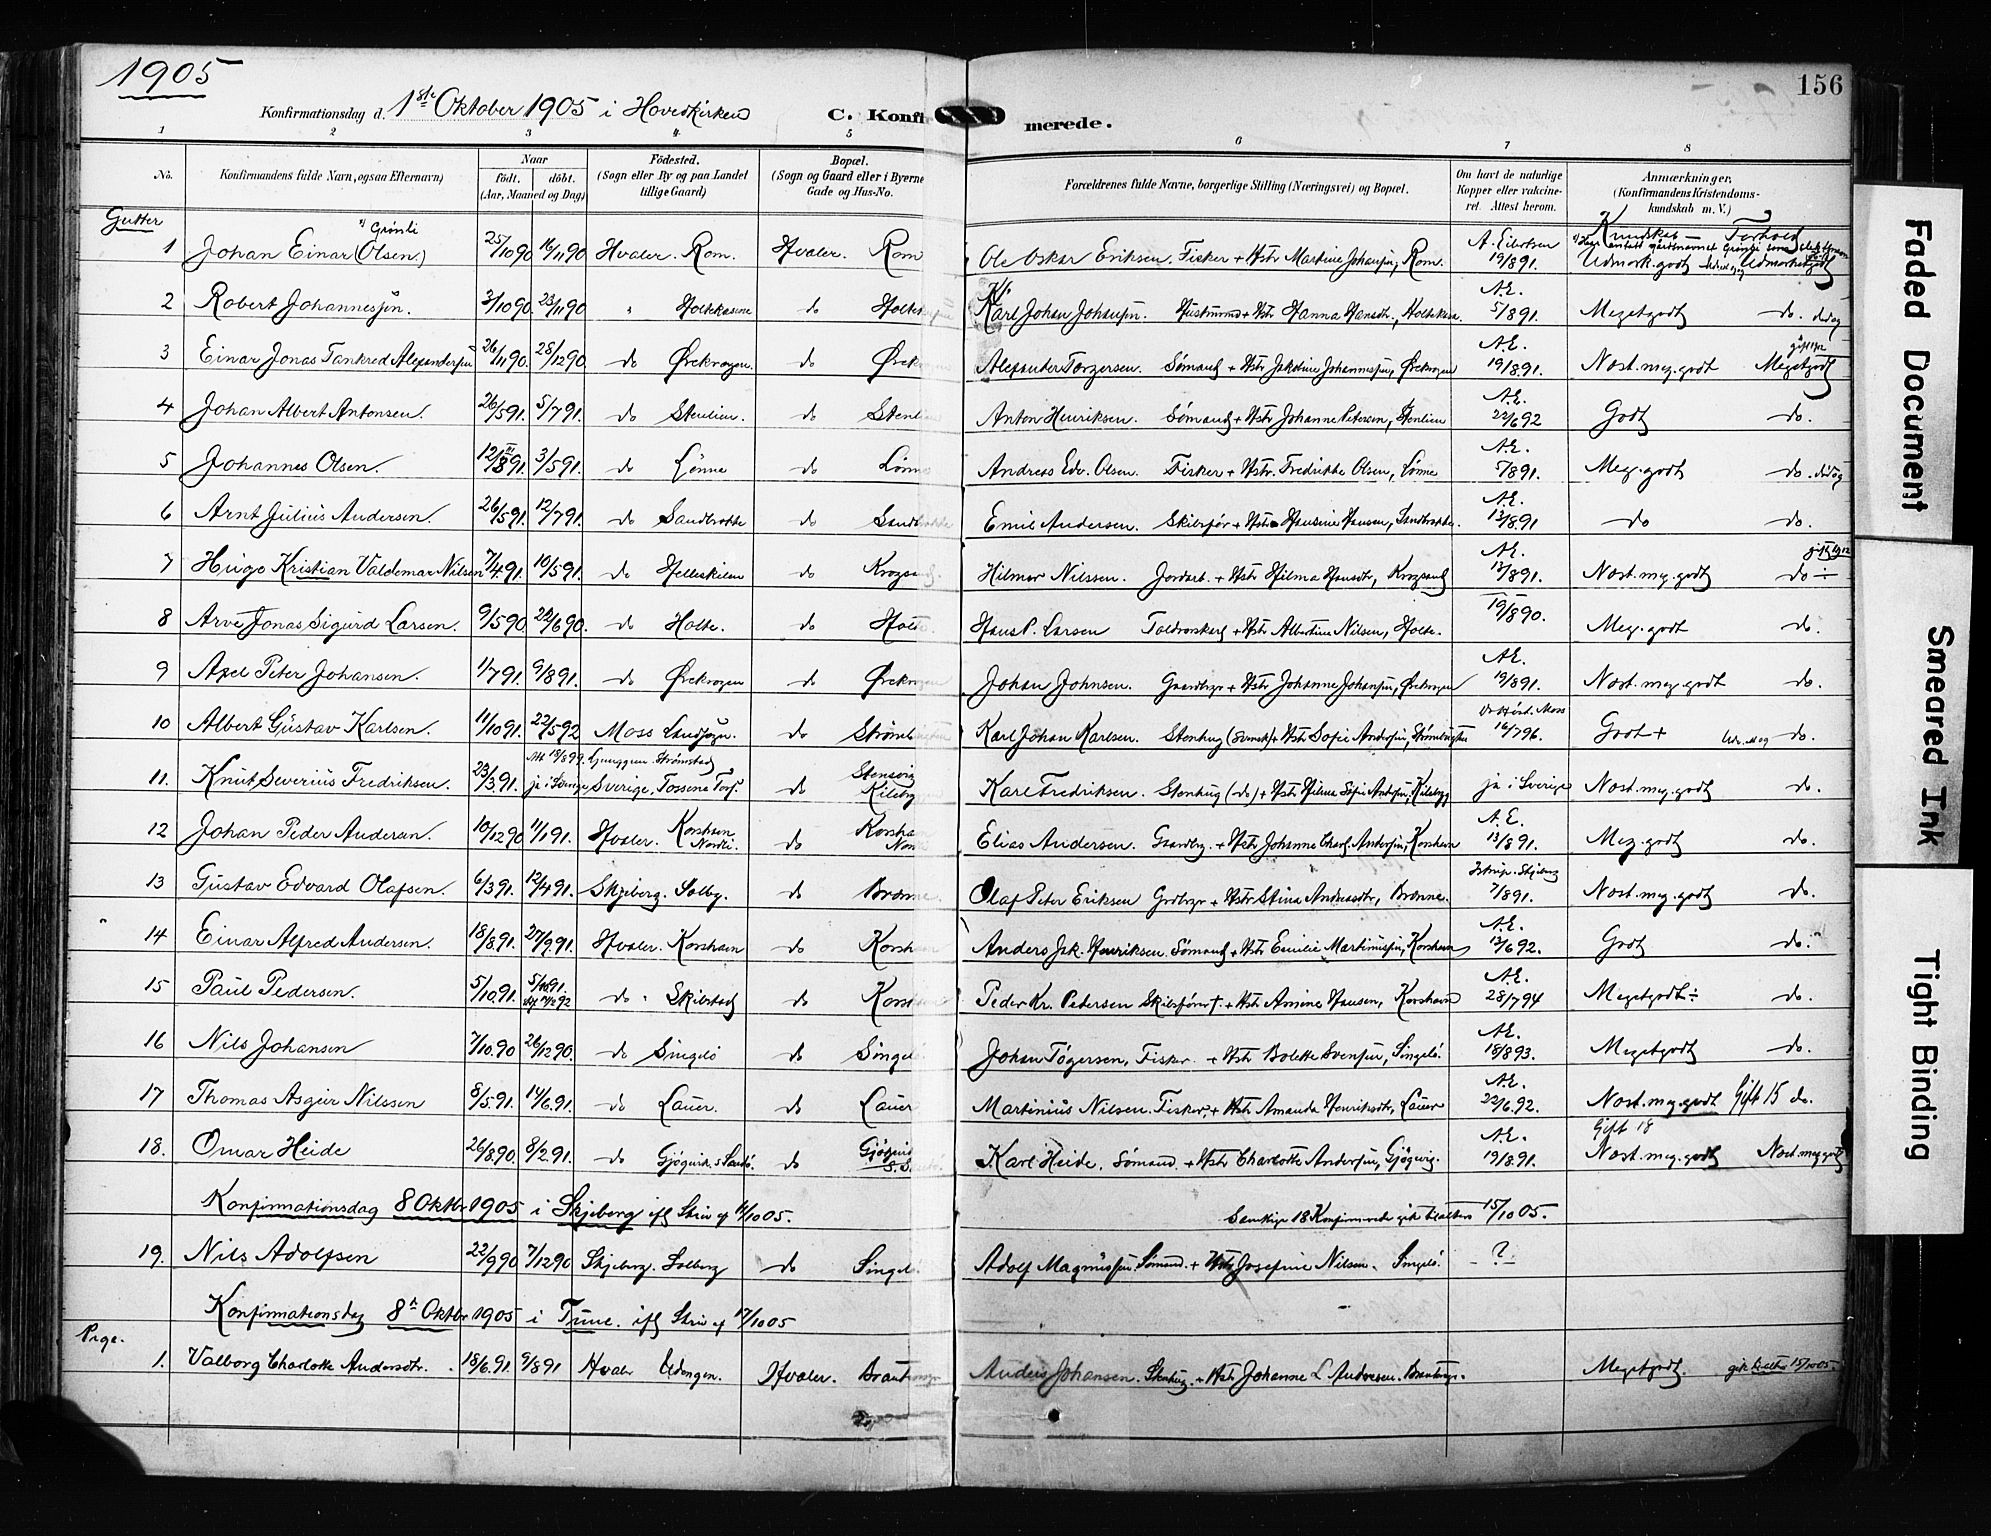 1905
156
Konfirmationsdag d. 1ste Oktober 1905 i Hovedkirken
C. Konfirmerede.
1 2 3 4 5 6 7 8
No. Konfirmandens fulde Navn, ogsaa Efternavn) Naar født. døbt. (Aar, Maaned og Dag) Fødested. (Sogn eller By og paa Landet tillige Gaard) Bopæl. (Sogn og Gaard eller i Byerne Gade og Hus-No. Forældrenes fulde Navne, borgerlige Stilling (Næringsvei) og Bopæl. Om havt de naturlige Kopper eller vakcineret. Attest herom. Anmærkninger, (Konfirmandens Kristendomskundskab m. V.)
Gutter
Kundskab — Forhold
Grønli
1 Johan Einar (Olsen.) 25/10 90 16/11 90 Hvaler. Rom. Hvaler. Rom Ole Oskar Eriksen. Fisker + Hstr Martine Johansen, Rom. A. Eilertsen 19/8 91. Udmerk. godt Udmerket godt
2 Robert Johannessen. 3/10 90. 23/11 90 " Holtekasene do Karl Johan Johansen. Husmand + Hstr Hanna Hansdtr., A.E. 5/8 91. Megetgodt do.
3 Einar Jonas Tankred Alexandersen 26/11 90. 28/12 90 do Ørekrogen. do Alexander Torgersen. Sømand + Hstr Jakobine Johannesen, Ørekrogen A.E. 19/8 91. Næst. meg. godt Megetgodt
4 Johan Albert Antonsen. 26/5 91. 5/7 91. do Stenlien. do Anton Henriksen. Sømand + Hstr Johanne Petersen, Stenlien A.E. 22/6 92 Godt do.
5 Johannes Olsen. 12/3 91. 3/5 91. do Lønne do Lønne Andreas Edv. Olsen. Fisker + Hstr. Fredrikke Olsen, Lønne A.E. 5/8 91. Meg. godt do.
6 Arnt Julius Andersen. 26/5 91. 12/7 91. do Sandbrotte do Emil Andersen. Skibsfør + Hstr Hansine Hansen, Sandbrotte. A.E. 13/8 91 do do.
7 Hugo Kristian Valdemar Nilsen 7/4 91. 10/5 91. do Helleskilen do Hilmar Nilssen. Jordarb. + Hstr Hilma Hansdtr, Krogsand A.E. 13/8 91. Næst. meg. godt do ÷
8 Arve Jonas Sigurd Larsen. 9/5 90. 22/6 90. do Holte. do Hans P. Larsen Toldvorskarl + Hstr Albertine Nilsen, Holte. 19/8 90. Meg. godt do.
9 Axel Peter Johansen. 1/7 91. 9/8 91. do Ørekrogen do Johan Johnsen. Gaardbrgr + Hstr Johanne Johansen, Ørekrogen A.E. 19/8 91. Næst. meg. godt do.
10 Albert Gustav Karlsen. 11/10 91. 22/5 92 Moss Landsogn. do Karl Johan Karlsen. Stenhug (Svensk) + Hstr Sofie Andersen, 16/7 96. Godt + do.
11. Knut Severius Fredriksen. 23/3 91. ja i Sverige Sverige, Tossene do Karl Fredriksen. Stenhug (do) + Hstr Hilma Sofie Andersen, ja i Sverige Næst. meg. godt do.
12 Johan Peder Andersen. 10/12 90 11/1 91. Hvaler. Korshavn Nordre. do Elias Andersen. Gaardbrg. + Hstr Johanne Charl. Andersen, Korshavn A.E. 13/8 91. Meg. godt do.
13 Gustav Edvard Olafsen. 6/3 91. 12/4 91. Skjeberg. Solby. do Olaf Peter Eriksen Grdbrgr + Hstr Stina Andreasdtr, Brønne. 7/8 91. Næst. meg. godt do.
14 Einar Alfred Andersen. 18/8 91. 27/9 91. Hvaler. Korshavn do Anders Jak. Henriksen. Sømand + Hstr Emilie Martinusen, Korshavn A.E. 13/6 92. Godt do.
15 Paul Pedersen. 5/10 91. do " Skibstad do Peder Kr. Petersen Skibsfører † + Hstr Amine Hansen, Korshavn A.E. 28/7 94 Megetgodt ÷ do.
16 Nils Johansen 7/10 90 26/12 90. do Singelö do Johan Tøgersen, Fisker. + Hstr Bolette Svensen, Singelö. A.E. 18/8 93. Megetgodt do.
17 Thomas Asgeir Nilssen 8/5 91. 14/6 91. do Lauer. do Lauer Martinius Nilsen. Fisker, + Hstr Amanda Henriksdtr, Lauer A.E. 22/6 92. Næst. meg. godt Gift 15 do.
18. Omar Heide 26/8 90. 8/2 91. do Gjøgvik. S. Sandö. do Karl Heide. Sømand. + Hstr Charlotte Andersen, Gjøgvig. A.E. 19/8 91. Gift 18 Næst. meg. godt Næst. meg godt
Konfirmationsdag 8 Oktbr 1905 i Skjeberg ifl Skriv af 11/10 05. Samtlige 18 Konfirmerede gik til alters 15/10 05.
19. Nils Adolfsen 22/9 90 7/12 90 Skjeberg. Solberg do Adolf Magnussen. Sømand. + Hstr Josefine Nilsen. Singelö. ?
Konfirmationsdag 8de Oktbr 1905 i Tune. ifl Skriv af 17/10 05
Pige.
1. Valborg Charlotte Andersdtr. 18/6 91. 9/8 91 Hvaler Udengen. Hvaler. Anders Johansen. Stenhug. + Hstr Johanne L Andresen. Megetgodt. gik til alters 15/10 05.
Faded Document
Smeared Ink
Tight Binding